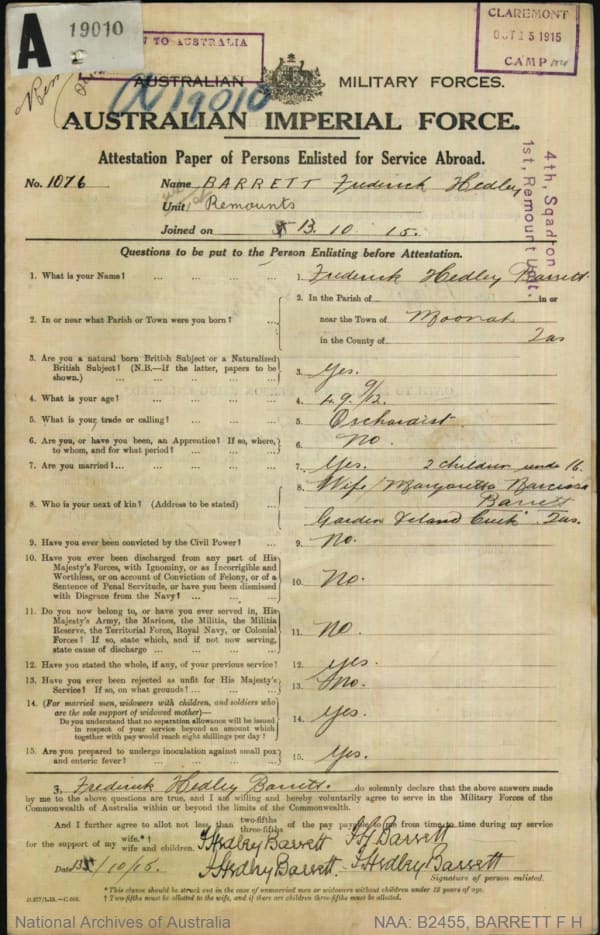 A
19010
TO AUSTRALIA
CLAREMONT
OCT 15 1915
CAMP
AUSTRALIAN MILITARY FORCES.
N 19010
AUSTRALIAN IMPERIAL FORCE.
Attestation Paper of Persons Enlisted for Service Abroad.
No. 1076 Name BARRETT Frederick Hedley
Unit Remounts
Joined on 13. 10 15.
4th, Sqadron
1st, Remount Unit.
Questions to be put to the Person Enlisting before Attestation.
1. What is your Name? ... ... ... ... 1. Frederick Hedley Barrett.
2. In or near what Parish or Town were you born? ... 2. In the Parish of in or
near the Town of Moonah
in the County of Tas
3. Are you a natural born British Subject or a Naturalized
British Subject? (N.B.—If the latter, papers to be
shown.) ... ... ... ... ... 3. Yes.
4. What is your age? ... ... ... ... 4. 49. 9/12.
5. What is your trade or calling? ... ... ... 5. Orchardist.
6. Are you, or have you been, an Apprentice? If so, where,
to whom, and for what period? ... ... ... 6. No
7. Are you married?... ... ... ... ... 7. Yes. 2 children under 16.
8. Who is your next of kin? (Address to be stated) ... 8. Wife Margaretta Narcissa
Barrett
Garden Island Creek Tas.
9. Have you ever been convicted by the Civil Power? ... 9. No.
10. Have you ever been discharged from any part of His
Majesty's Forces, with Ignominy, or as Incorrigible and
Worthless, or on account of Conviction of Felony, or of a
Sentence of Penal Servitude, or have you been dismissed
with Disgrace from the Navy? ... ... ... 10. No.
11. Do you now belong to, or have you ever served in, His
Majesty's Army, the Marines, the Militia, the Militia
Reserve, the Territorial Force, Royal Navy, or Colonial
Forces? If so, state which, and if not now serving,
state cause of discharge ... ... ... ... 11. No.
12. Have you stated the whole, if any, of your previous service? 12. yes.
13. Have you ever been rejected as unfit for His Majesty's
Service? If so, on what grounds? ... ... ... 13. No.
14. (For married men, widowers with children, and soldiers who
are the sole support of widowed mother)—
Do you understand that no separation allowance will be issued
in respect of your service beyond an amount which
together with pay would reach eight shillings per day? 14. Yes.
15. Are you prepared to undergo inoculation against small pox
and enteric fever? ... ... ... ... 15. Yes.
I, Frederick Hedley Barrett. do solemnly declare that the above answers made
by me to the above questions are true, and I am willing and hereby voluntarily agree to serve in the Military Forces of the
Commonwealth of Australia within or beyond the limits of the Commonwealth.
And I further agree to allot not less than two-fifths three-fifths of the pay payable to me from time to time during my service
for the support of my wife.*† wife and children. F Hedley Barrett F H Barrett
Date 13/10/15. F Hedley Barrett F Hedley Barrett
Signature of person enlisted.
*This clause should be struck out in the case of unmarried men or widowers without children under 18 years of age.
†Two-fifths must be allotted to the wife, and if there are children three-fifths must be allotted.
National Archives of Australia NAA: B2455, BARRETT F H